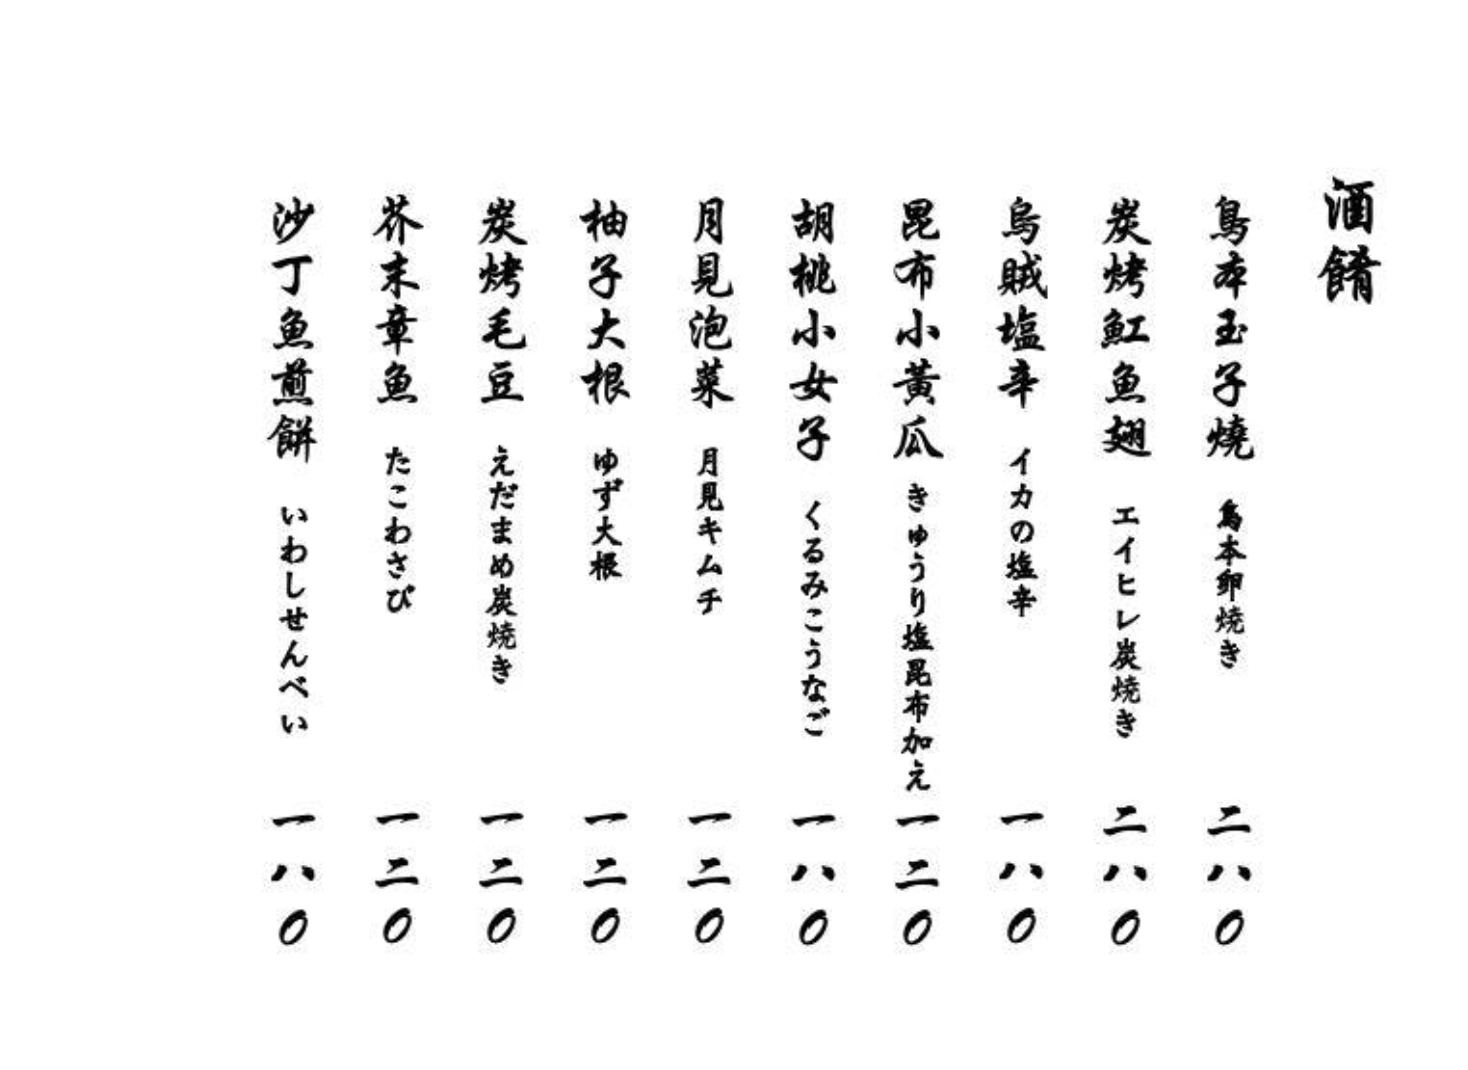 酒肴
鳥本玉子燒 鳥本卵焼き 二八0
炭烤魟魚翅 エイヒレ炭焼き 二八0
烏賊塩辛 イカの塩辛 一八0
昆布小黃瓜 きゅうり塩昆布加え 一二0
胡桃小女子 くるみこうなご 一八0
月見泡菜 月見キムチ 一二0
柚子大根 ゆず大根 一二0
炭烤毛豆 えだまめ炭焼き 一二0
芥末章魚 たこわさび 一二0
沙丁魚煎餅 いわしせんべい 一八0